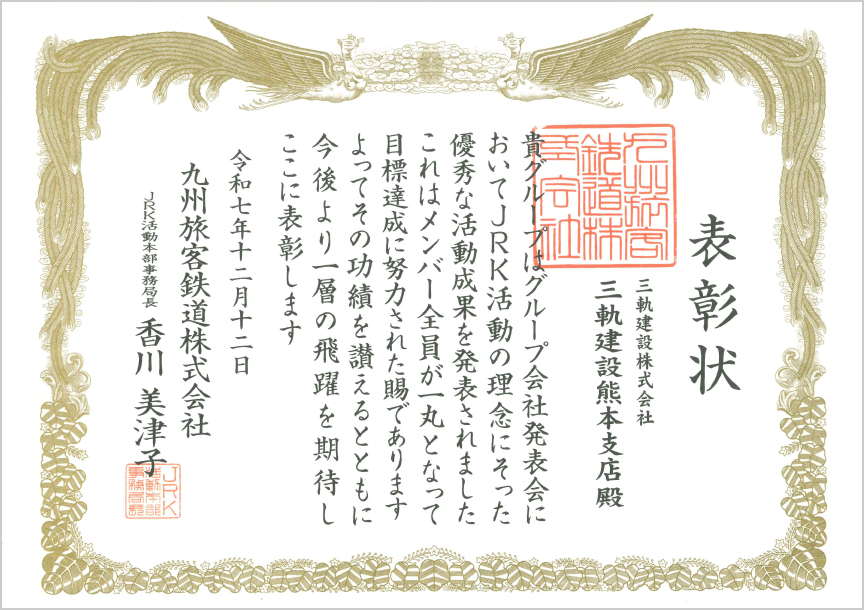 表彰状
三軌建設株式会社
三軌建設熊本支店殿
貴グループはグループ会社発表会に
おいてJRK活動の理念にそった
優秀な活動成果を発表されました
これはメンバー全員が一丸となって
目標達成に努力された賜であります
よってその功績を讃えるとともに
今後より一層の飛躍を期待し
ここに表彰します
令和七年十二月十二日
九州旅客鉄道株式会社
JRK活動本部事務局長
香川 美津子
九州旅客
鉄道株
式会社
JRK
活動本部
事務局長